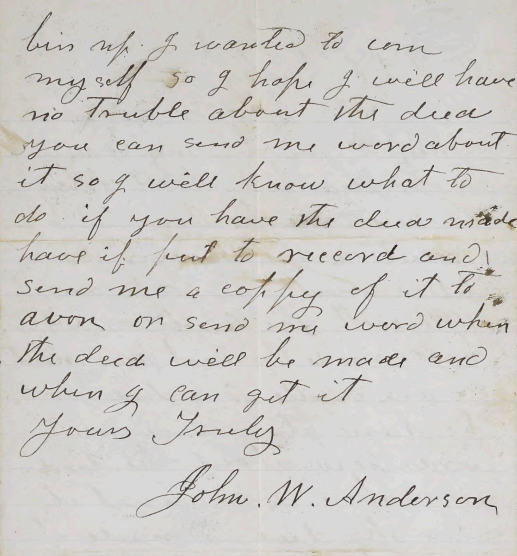 bin up. I wanted to com
myself so I hope I will have
no truble about the deed
you can send me word about
it so I will know what to
do if you have the deed made
have if put to reccord and
send me a coppy of it to
avon or send me word when
the deed will be made and
when I can get it
Yours Truly
John. W. Anderson